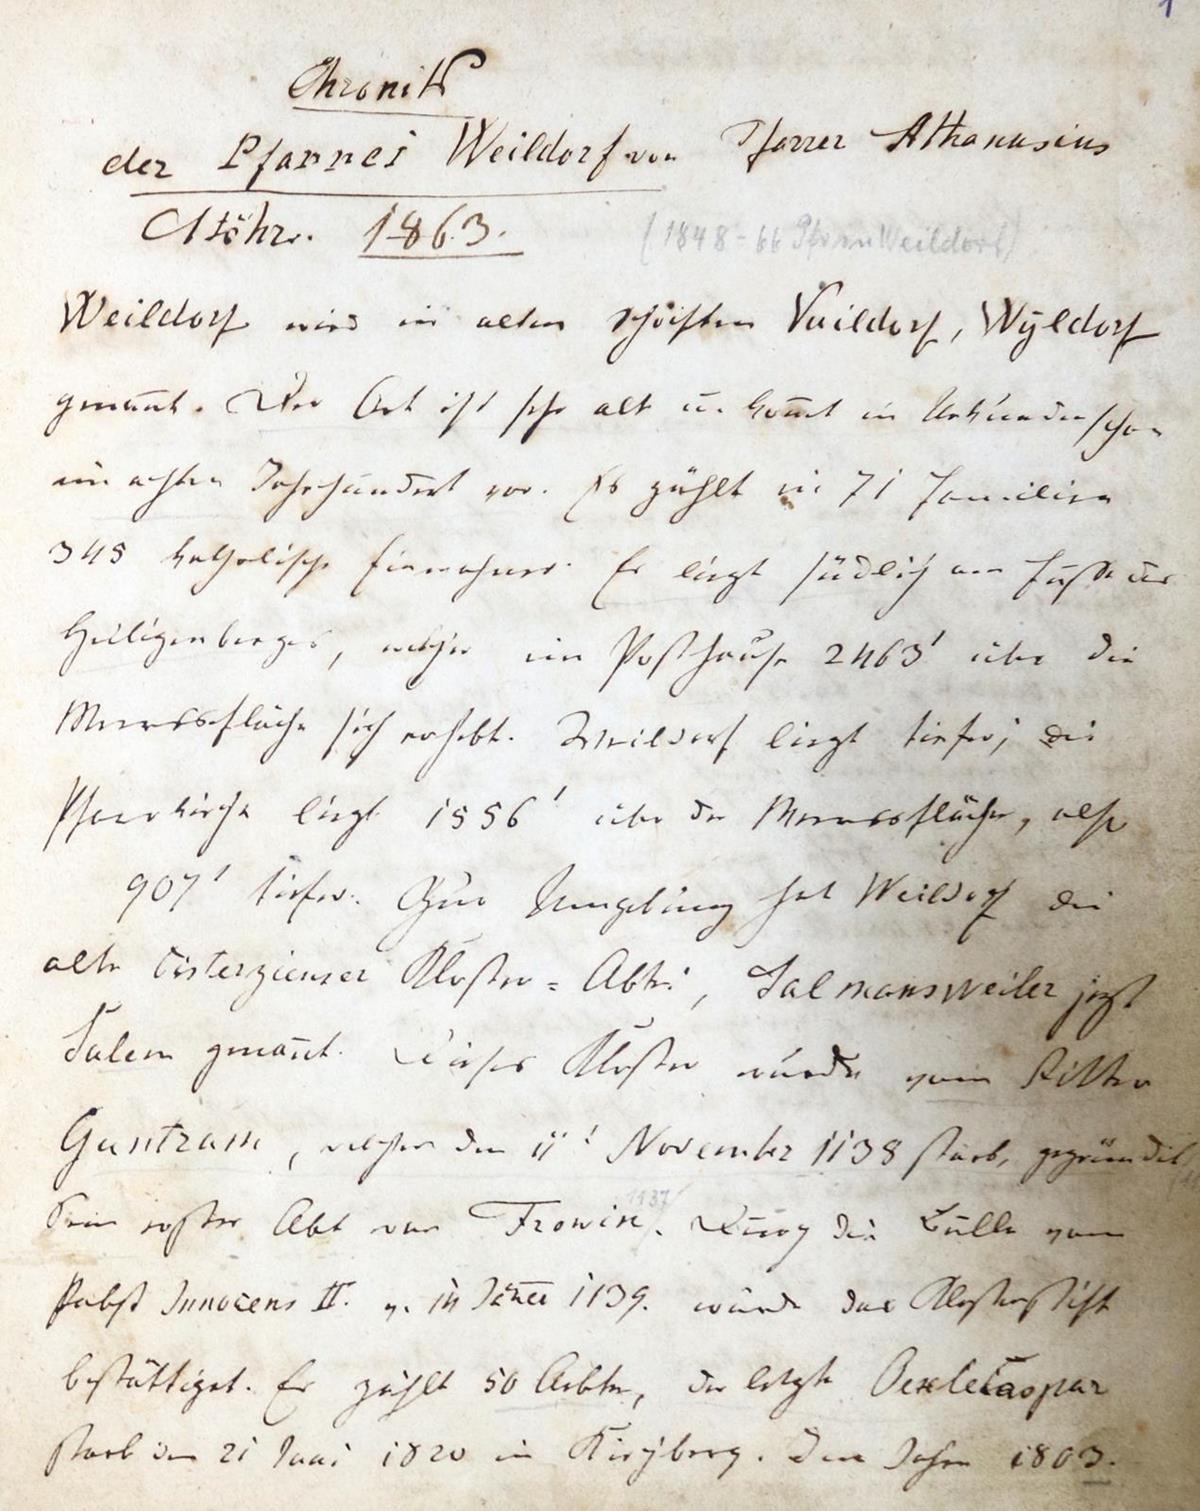 1
Chronik
der Pfarrei Weildorf von Pfarrer Athanasius
Stöhr. 1863.
(1848-66 Pfarrer Weildorf)
Weildorf wird in alten Schriften Vuildorf, Wÿldorf
genannt. Der Ort ist sehr alt u. kom̅t in Urkunden schon
im achten Jahrhundert vor. Es zählt in 71 Familien
345 katholische Einwohner. Er liegt südlich am Fuße des
Heiligenberges, welcher im Posthause 2463' über die
Meeresfläche sich erhebt. Weildorf liegt tiefer; die
Pfarrkirche liegt 1556' über der Meeresfläche, also
907' tiefer. Zur Umgebung hat Weildorf die
alte Cisterzienser Kloster=Abtei, Salmansweiler jetzt
Salem genan̅t. Dieses Kloster wurde vom Ritter
Guntram, welcher den 11' November 1138 starb, gegründet
Sein erster Abt war Frowin 1137. Durch die Bulle vom
Pabst Innocens II. v. 14 Jäner 1139. wurde das Klosterstift
bestättiget. Er zählt 50 Aebte, der letzte Oexle Caspar
starb den 21 Juni 1820 in Kirchberg. Im Jahre 1803.